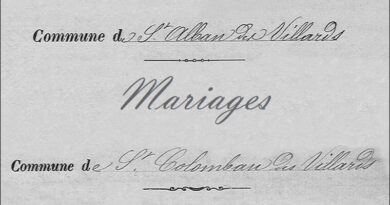 Commune de St Alban des Villards
Mariages
Commune de St Colomban des Villards